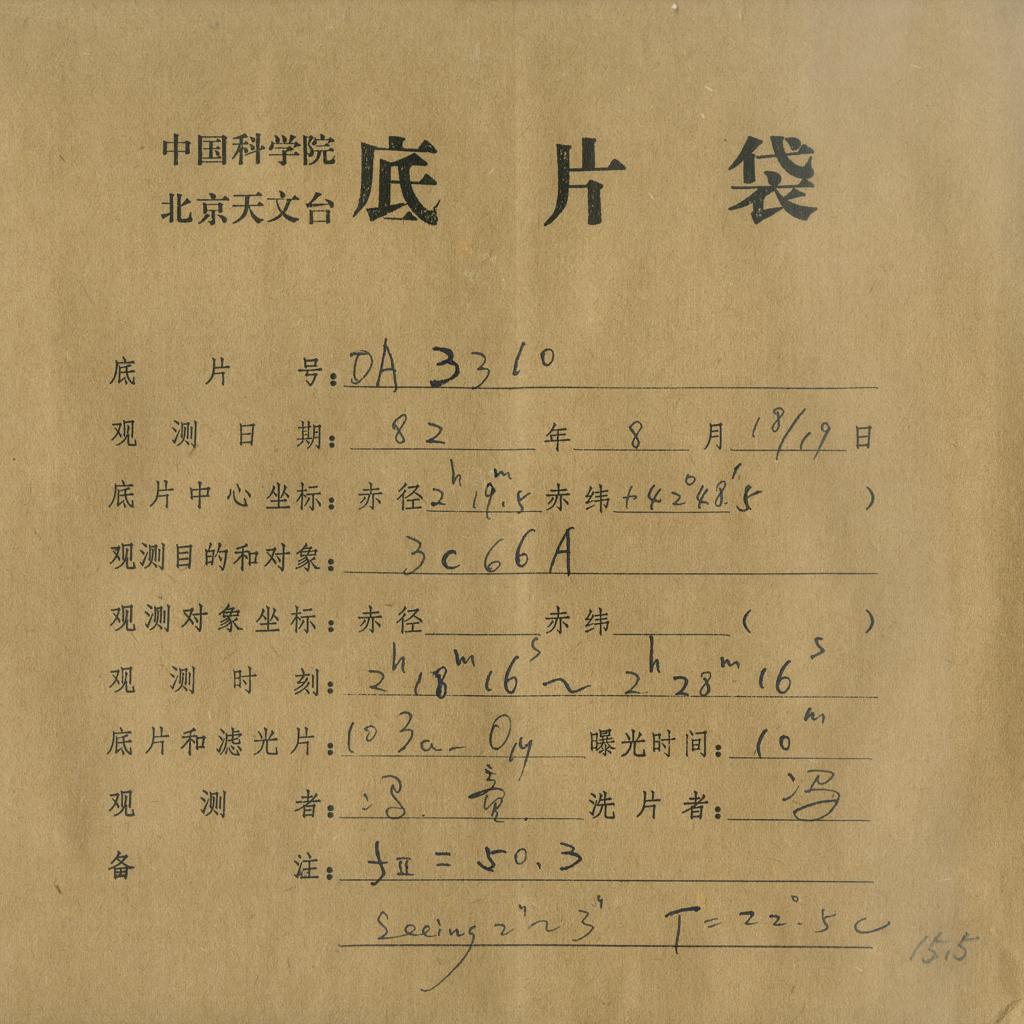 中国科学院
北京天文台
底片袋
底片号: DA 3310
观测日期: 82 年 8 月 18/19 日
底片中心坐标: 赤径 2h 19m.5 赤纬 +42°48'.5 )
观测目的和对象: 3C66A
观测对象坐标: 赤径 赤纬 ( )
观测时刻: 2h18m16s ~ 2h28m16s
底片和滤光片: 103a-O, 曝光时间: 10m
观测者: 冯 洗片者: 冯
备注: fII = 50.3
Seeing 2"~3" T=22°.5 C
15.5